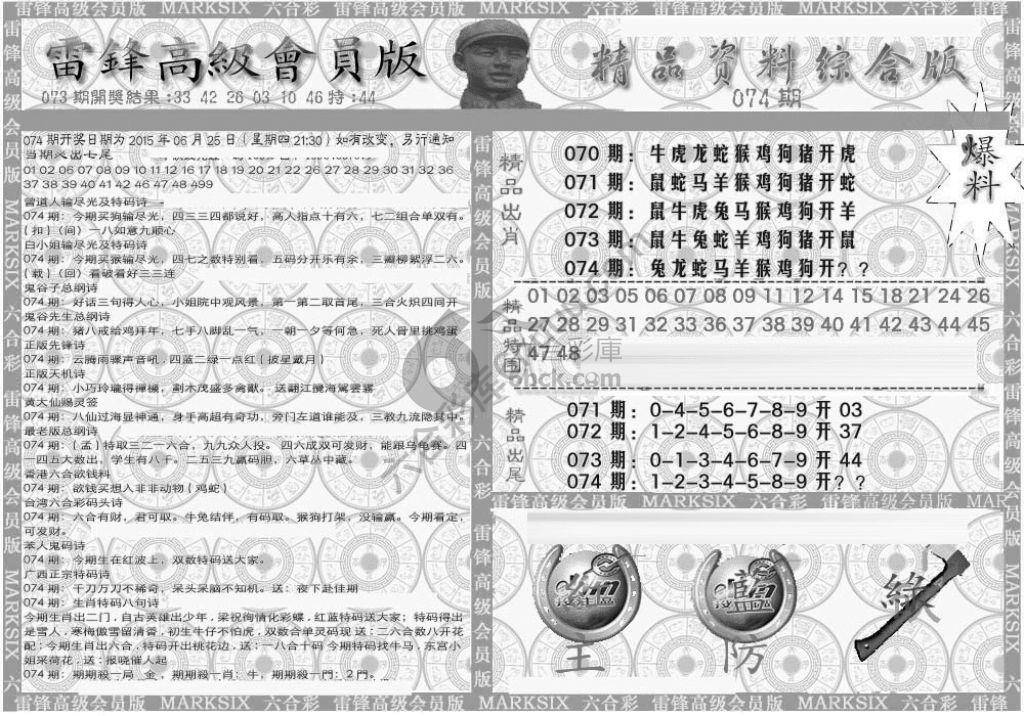 雷锋高级会员版 MARKSIX 六合彩 雷锋高级会员版 MARKSIX 六合彩 雷锋高级会员版 MARKSIX 六合彩 雷锋
雷鋒高級會員版
精品资料综合版
073 期開獎結果:33 42 26 03 10 46 特:44
074 期
爆料
074 期开奖日期为 2015 年 06 月 25 日(星期四 21:30)如有改变,另行通知
当期必出七尾
01 02 06 07 08 09 10 11 12 16 17 18 19 20 21 22 26 27 28 29 30 31 32 36
37 38 39 40 41 42 46 47 48 499
曾道人输尽光及特码诗
074 期:今期买狗输尽光,四三三四都说好,高人指点十有六,七二组合单双有。
{扣}(间)一八如意九顺心
白小姐输尽光及特码诗
074 期:今期买猴输尽光,四七之数特别看,五码分开乐有余,三瓣柳絮浮二六。
{载}(回)看破看好三三连
鬼谷子总纲诗
074 期:好话三句得人心,小姐院中观风景,第一第二取首尾,三合火炽四同开
鬼谷先生总纲诗
074 期:猪八戒给鸡拜年,七手八脚乱一气,一朝一夕等何急,死人骨里挑鸡蛋
正版先锋诗
074 期:云腾雨骤声音吼,四蓝二绿一点红{披星戴月}
正版天机诗
074 期:小巧玲珑得禅机,割木茂盛多禽猷。送翻江醜海駕雲霧
黄大仙赐灵签
074 期:八仙过海显神通,身手高超有奇功,旁门左道谁能及,三教九流隐其中。
最老版总纲诗
074 期:{孟}特取三二一六合,九九众人投。四六成双可发财,能跟乌龟赛。四
一四五大数出,学生有八千。二五三九赢码胆,六草丛中藏。
香港六合欲钱料
074 期:欲钱买想入非非动物{鸡蛇}
台湾六合彩码头诗
074 期:六合有财,君可取。牛兔结伴,有码取。猴狗打架,没输赢。今期看定,
可发财。
苯人鬼码诗
074 期:今期生在红波上,双数特码送大家。
广西正宗特码诗
074 期:千刀万刀不稀奇,呆头呆脑不知机。送:夜下赴佳期
074 期:生肖特码八句诗
今期生肖出二门,自古英雄出少年,梁祝徇情化彩蝶,红蓝特码送大家;特码得出
是雪人,寒梅傲雪留清香,初生牛仔不怕虎,双数合单灵码现 送:二六合数八开花
配:今期生肖出六合,特码开出桃花边,送:一八合十码 今期特码找牛马,东宫小
姐采荷花,送:报晓催人起
074 期:期期殺一局 金,期期殺一肖:牛,期期殺一門:2 門。
精品出肖
070 期: 牛虎龙蛇猴鸡狗猪开虎
071 期: 鼠蛇马羊猴鸡狗猪开蛇
072 期: 鼠牛虎兔马猴鸡狗开羊
073 期: 鼠牛兔蛇羊鸡狗猪开鼠
074 期: 兔龙蛇马羊猴鸡狗开? ?
精品特围
01 02 03 05 06 07 08 09 11 12 14 15 18 21 24 26
27 28 29 31 32 33 36 37 39 40 41 42 43 44 45
47 48
精品出尾
071 期: 0-4-5-6-7-8-9 开 03
072 期: 1-2-4-5-6-8-9 开 37
073 期: 0-1-3-4-6-7-9 开 44
074 期: 1-2-3-4-5-8-9 开? ?
雷锋高级会员版 MARKSIX 六合彩 雷锋高级会员版 MARKSIX
主
防
绿
雷锋高级会员版 MARKSIX 六合彩 雷锋高级会员版 MARKSIX 六合彩 雷锋高级会员版 MARKSIX 六合彩 雷锋